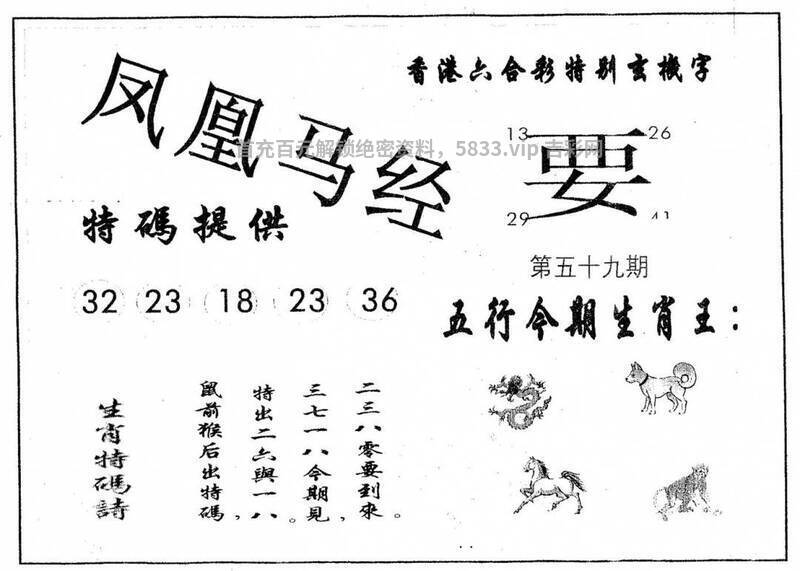 凤凰马经
香港六合彩特别玄機字
首充百元解锁绝密资料，5833.vip 吉彩网
13 26
要
29 41
特碼提供
第五十九期
32 23 18 23 36
五行今期生肖王：
生肖特碼詩
鼠前猴后出特碼，
特出二六與一八。
三七一八今期見，
二三八零要到來。